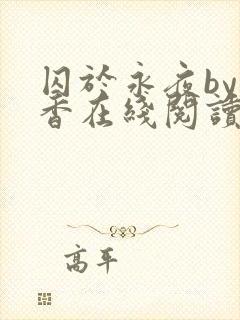 囚於永夜by
香在綫閱讀
高平